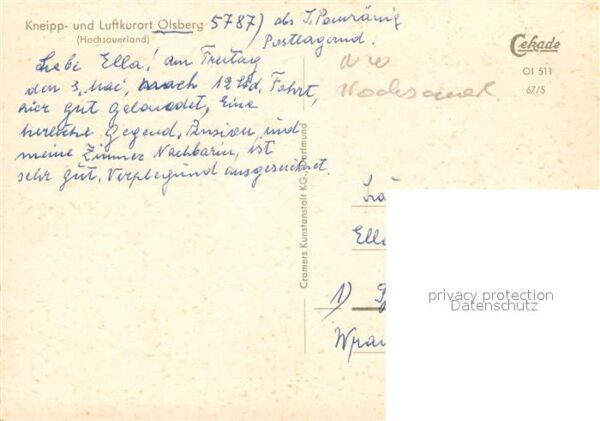 Kneipp- und Luftkurort Olsberg 5787)
(Hochsauerland)
Postlagernd.
Liebe Ella! am Freitag
den 3. Mai, nach 12 Std. Fahrt,
hier gut gelandet, Eine
herrliche Gegend, Pension, und
meine Zimmer Nachbarin, ist
sehr gut. Verpflegung ausgezeichnet.
Cekade
Ol 511
67/5
Cramers Kunstanstalt KG, Dortmund
Ella
1)
privacy protection
Datenschutz